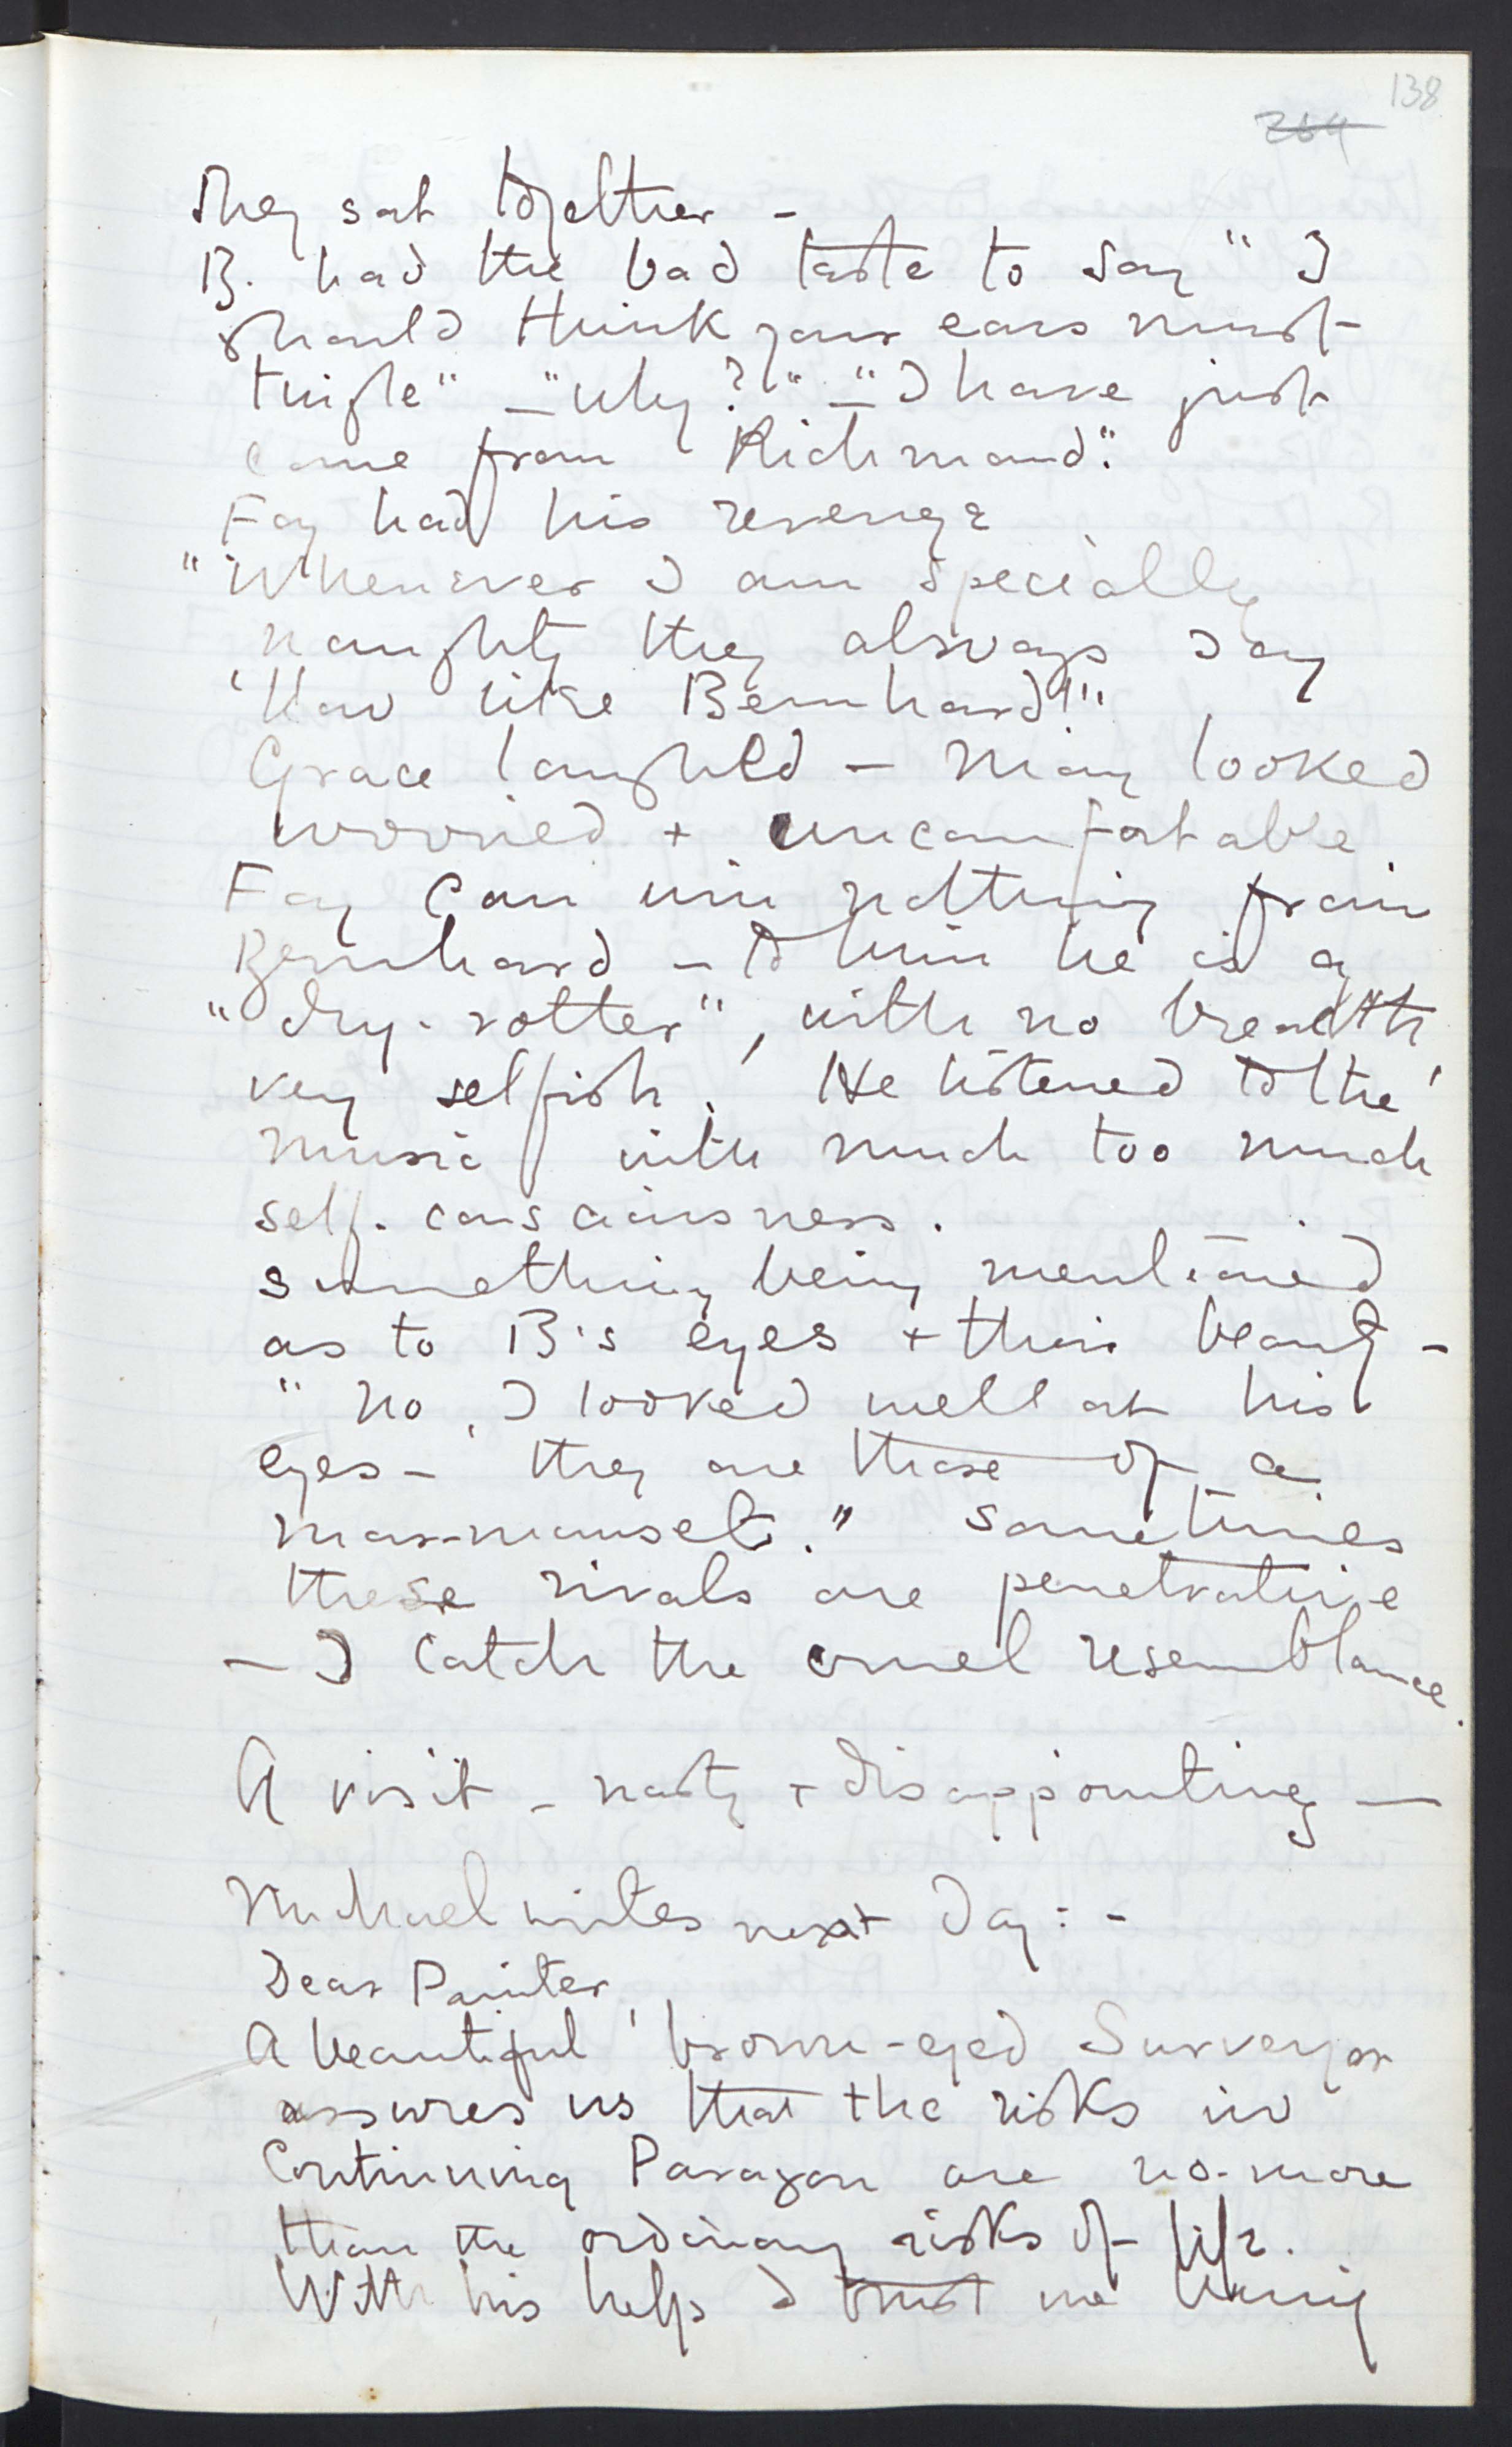 138
264
They sat together -
B. had the bad taste to say "I
should think your ears must
tingle" - "Why?" - "I have just
come from Richmond."
Fay had his revenge
"Whenever I am specially
naughty they always say
'How like Bernhard!'"
Grace laughed - May looked
worried + uncomfortable
Fay can win nothing from
Bernhard - to him he is a
"dry-rotter", with no breadth,
very selfish. He listened to the
music with much too much
self-consciousness.
Something being mentioned
as to B's eyes + their beauty -
"No, I looked well at his
eyes - they are those of a
mar-mauset." Sometimes
these rivals are penetrative
- I catch the cruel resemblance.
A visit - nasty + disappointing -
Michael writes next day: -
Dear Painter,
A beautiful brown-eyed Surveyor
assures us that the risks in
Continuing Paragon are no more
than the ordinary risks of life.
With his help I trust we bring